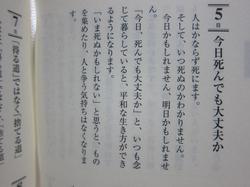 5日 今日死んでも大丈夫か
人はかならず死にます。
そして、いつ死ぬのかわかりません。
今日かもしれません、明日かもしれませ
ん。
「今日、死んでも大丈夫か」と、いつも念
じて暮らしていると、平和な生き方ができ
るようになります。
「いま死ぬかもしれない」と思うと、もの
を集めたり、人と争う気持ちはなくなりま
す。
7日 「得る道」ではなく「捨てる道」